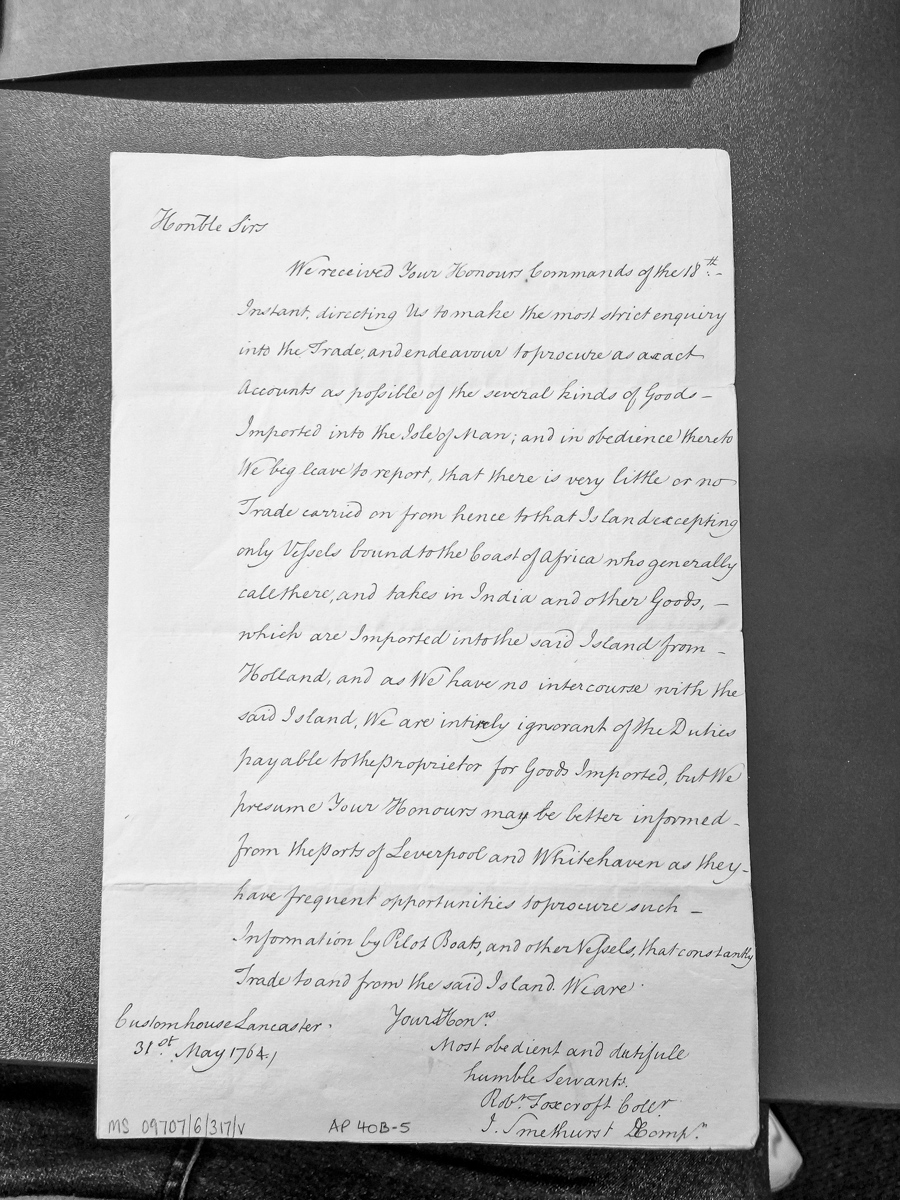 Honble Sirs
We received Your Honours Commands of the 18th. -
Instant, directing Us to make the most strict enquiry
into the Trade, and endeavour to procure as axact
Accounts as possible of the several kinds of Goods -
Imported into the Isle of Man; and in obedience thereto
We beg leave to report, that there is very little or no
Trade carried on from hence to that Island excepting
only Vessels bound to the Coast of Africa who generally
cale there, and takes in India and other Goods, -
which are Imported into the said Island from -
Holland, and as We have no intercourse with the
said Island, We are intirely ignorant of the Duties
payable to the Proprietor for Goods Imported, but We
presume Your Honours may be better informed -
from the Ports of Leverpool and Whitehaven as they -
have frequent opportunities to procure such -
Information by Pilot Boats, and other Vessels, that constantly
Trade to and from the said Island. We are
Your Honrs
Customhouse Lancaster.
31st. May 1764,
Most obedient and dutifule
humble Servants.
Robt. Foxcroft Collr
J. Smethurst DCompr
MS 09707/6/317/V
AP 40B-5